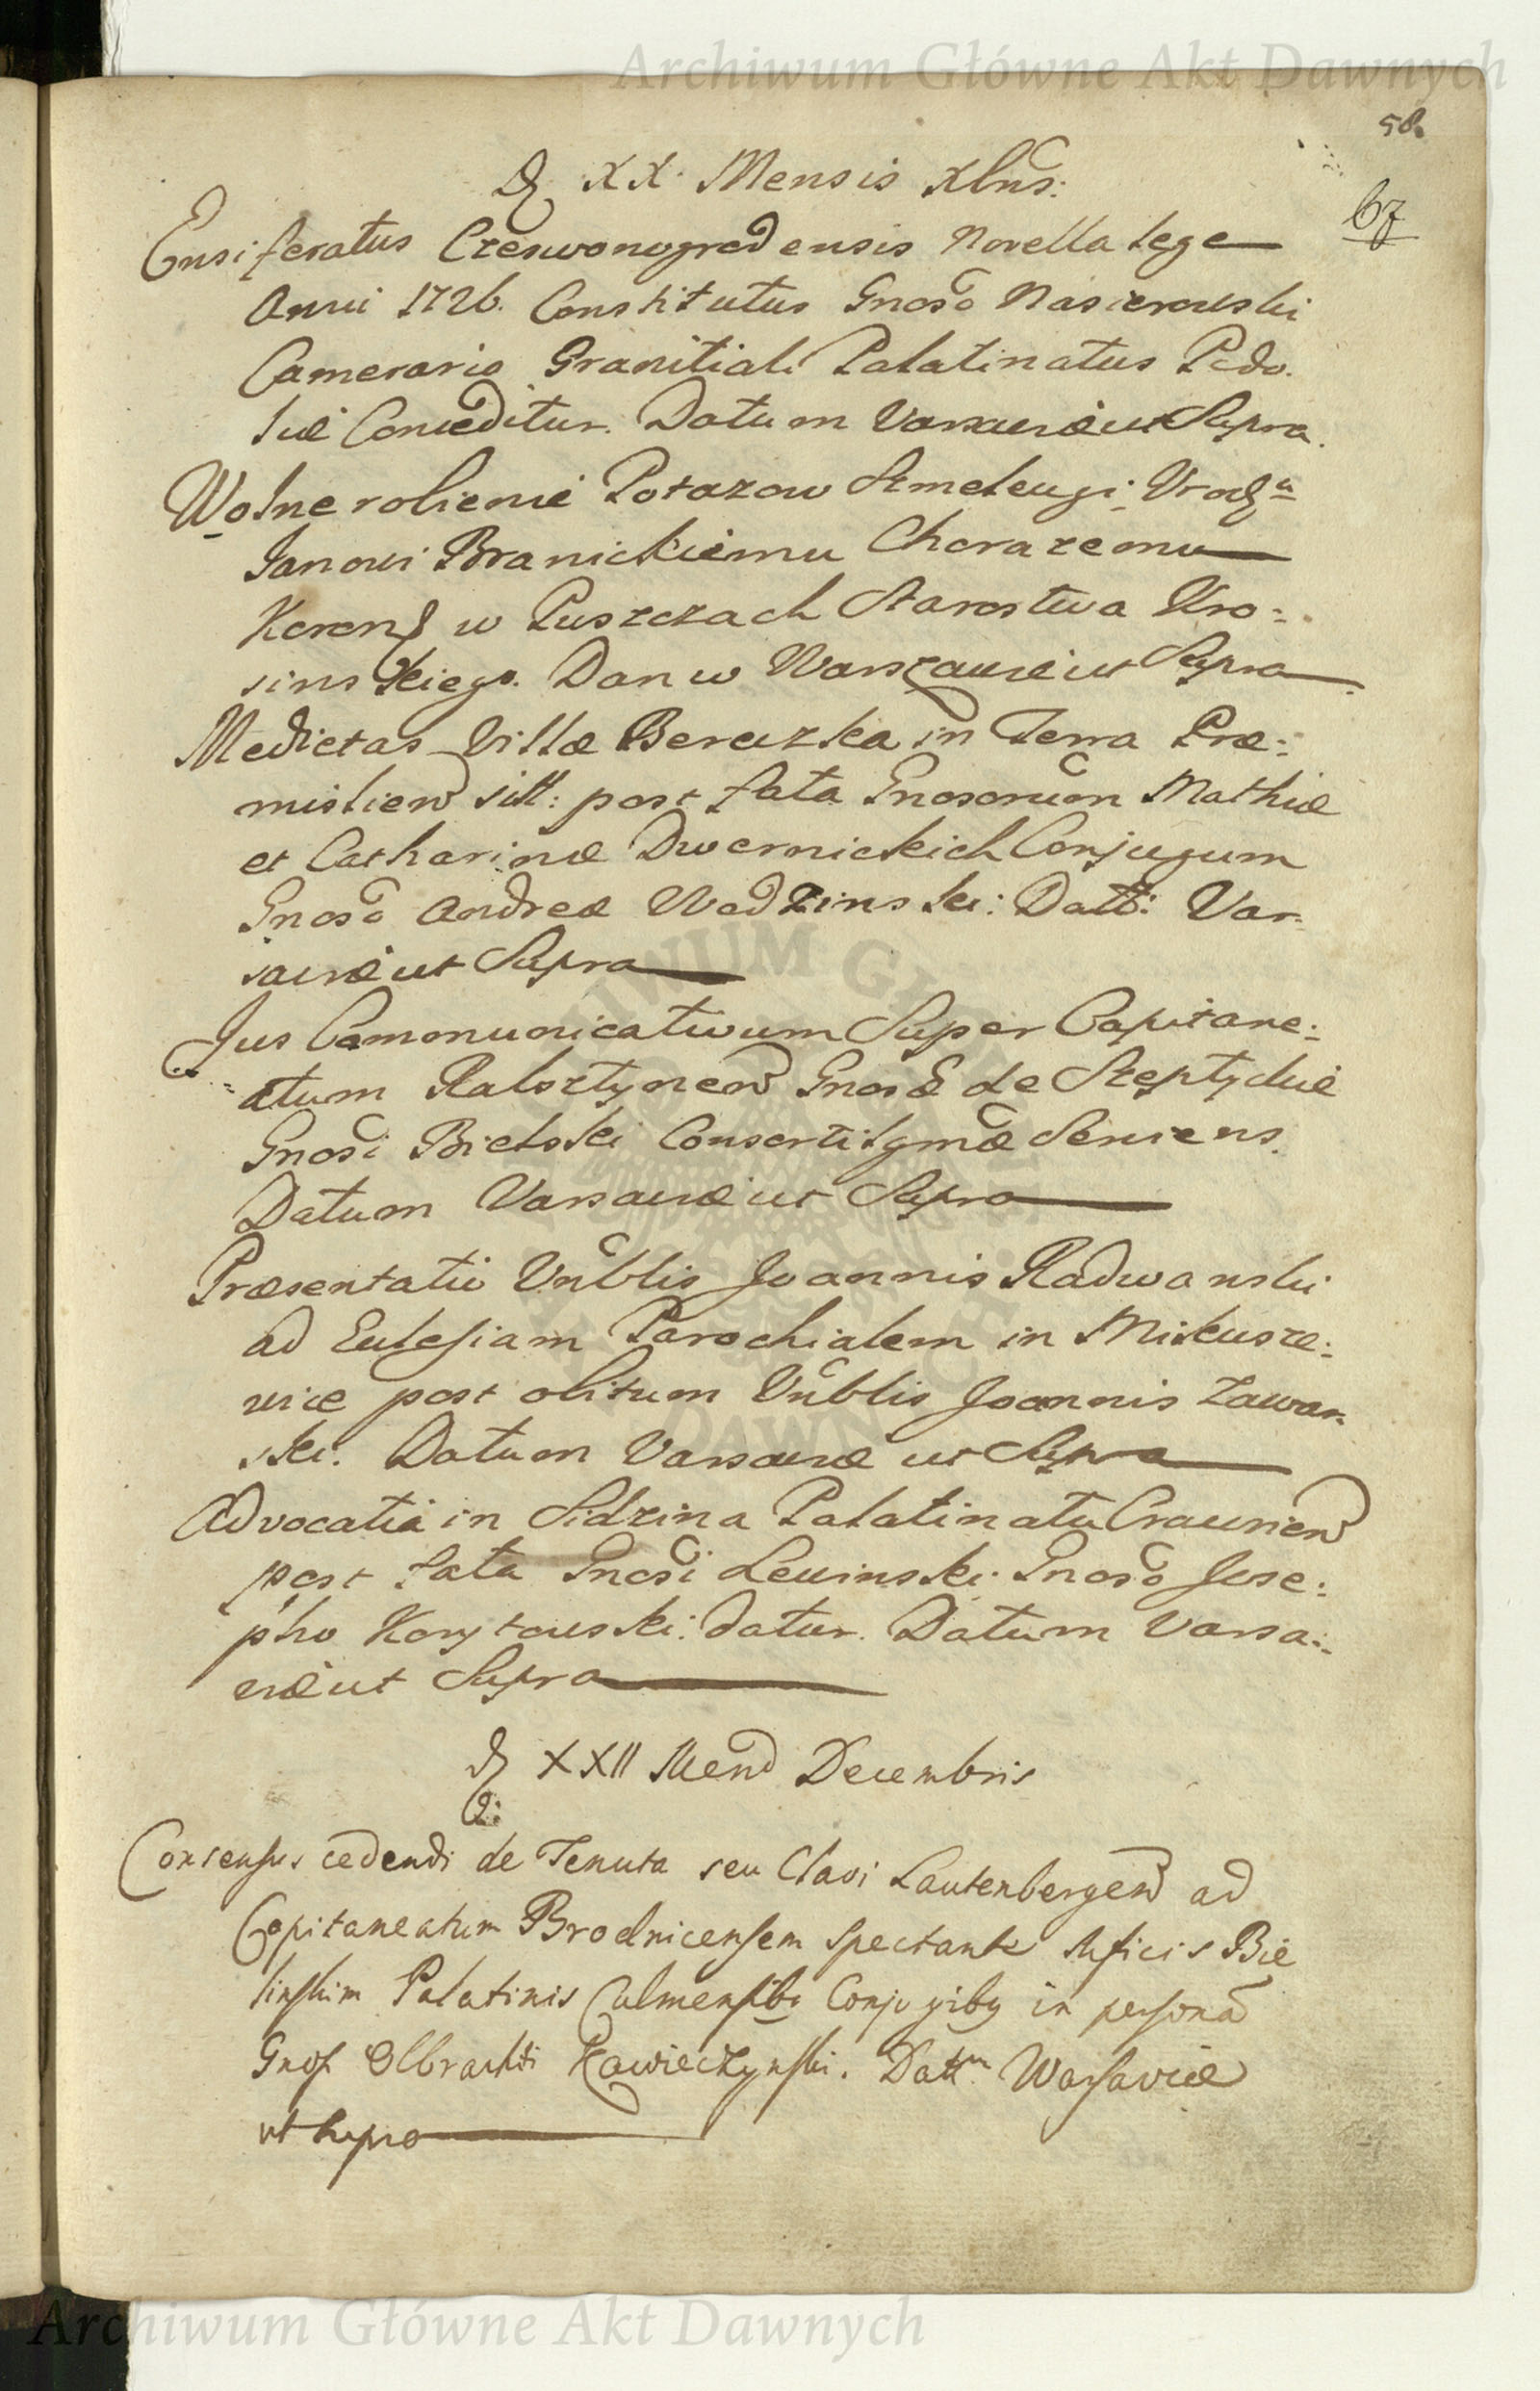 Archiwum Główne Akt Dawnych
58.
67
D XX. Mensis Xbris:
Ensiferatus Czerwonogrodensis Novella lege
Anni 1726. Constitutus Gnoso Nasierowski
Camerario Granitiali Palatinatus Podo-
liæ Conceditur. Datum Varsaviæ ut Supra.
Wolne robienie Potazow Smelcugi Urodz^u
Janowi Branickiemu Chorazemu
Koron w Puszczach Starostwa Kro=
sinskiego. Dan w Warszawie ut Supra
Medietas Villæ Berezka in Terra Præ=
mislien sitt: post fata Gnosorum Mathiæ
et Catharinæ Dwernickich Conjugum
Gnoso Andreæ Wodzinski: Datt: Var=
saviæ ut Supra
Jus Communicativum Super Capitane=
atum Rabsztynen Gnosæ de Szeptyckie
Gnosi Bielski Consorti Lgmæ Serviens.
Datum Varsaviæ ut Supra
Præsentatio Vnblis Joannis Radwanski
ad Eulesiam Parochialem in Mikusze=
wice post obitum Vnblis Joannis Zawar=
ski. Datum Varsaviæ ut Supra
Advocatia in Sidzina Palatinatu Cravien
post fata Gnosi Lewinski Gnoso Jose=
pho Korytowski: datur. Datum Varsa=
viæ ut Supra
D XXII Mens Decembris
Consensus cedendi de Tenuta seu Clavi Lautenbergen ad
Capitaneatum Brodnicensem spectante Mficis Bie
linskim Palatinis Culmensibs Conjugibq in personã
Gnosi Olbrachti Kawieczynski. Dattm Warsaviæ
ut supra
Archiwum Główne Akt Dawnych